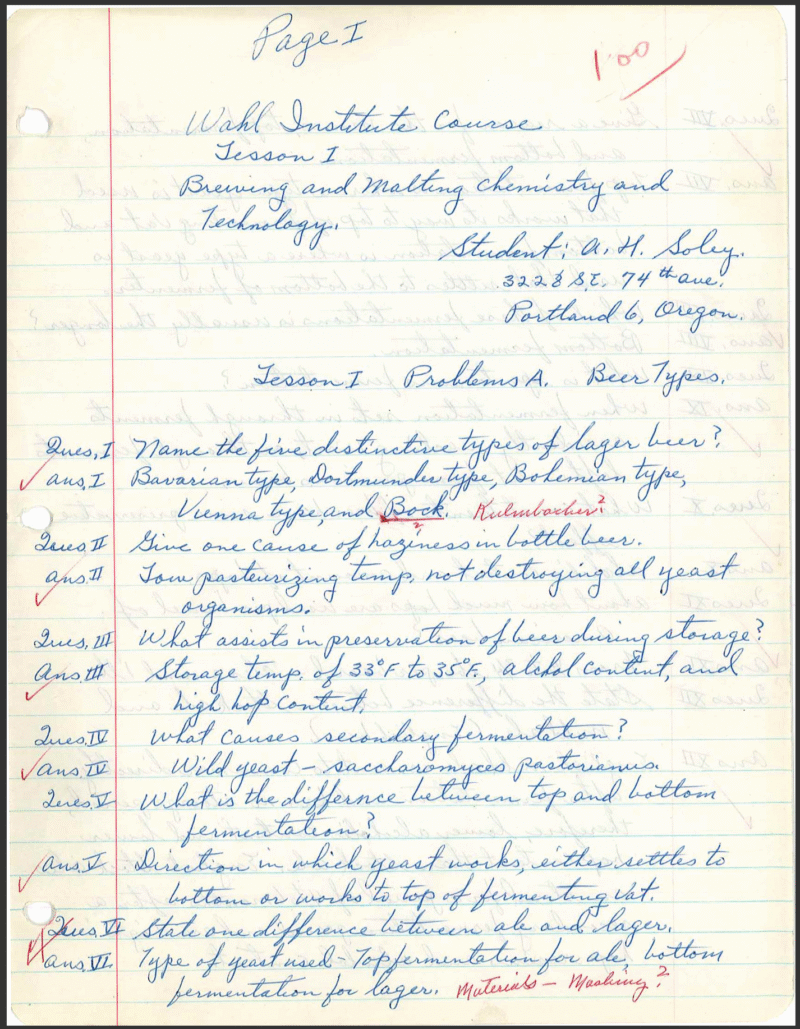 Page I
1.00
Wahl Institute Course
Lesson I
Brewing and Malting Chemistry and
Technology.
Student: A. H. Soley.
3228 S.E. 74th ave.
Portland 6, Oregon.
Lesson I Problems A. Beer Types.
Ques. I Name the five distinctive types of lager beer?
Ans. I Bavarian type, Dortmunder type, Bohemian type,
Vienna type, and Bock. Kulmbacher?
?
Ques. II Give one cause of haziness in bottle beer.
Ans. II Low pasteurizing temp. not destroying all yeast
organisms.
Ques. III What assists in preservation of beer during storage?
Ans. III Storage temp. of 33°F to 35°F., alchol content, and
high hop content.
Ques. IV What causes secondary fermentation?
Ans. IV Wild yeast – saccharomyces pastorianus.
Ques. V What is the differnce between top and bottom
fermentation?
Ans. V Direction in which yeast works, either settles to
bottom or works to top of fermenting vat.
Ques. VI State one difference between ale and lager.
Ans. VI Type of yeast used – Top fermentation for ale, bottom
fermentation for lager. Materials – Mashing?